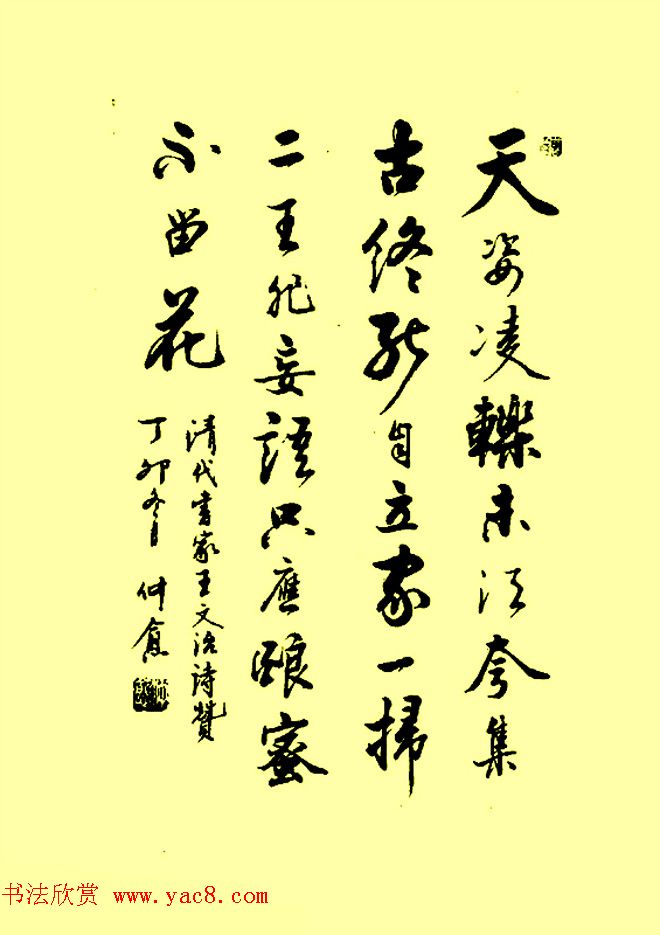 天姿凌轢未須夸集
古終能自立家一掃
二王非妄語只應酿蜜
不留花
清代書家王文治詩贊
丁卯冬月 仲
书法欣赏 www.yac8.com